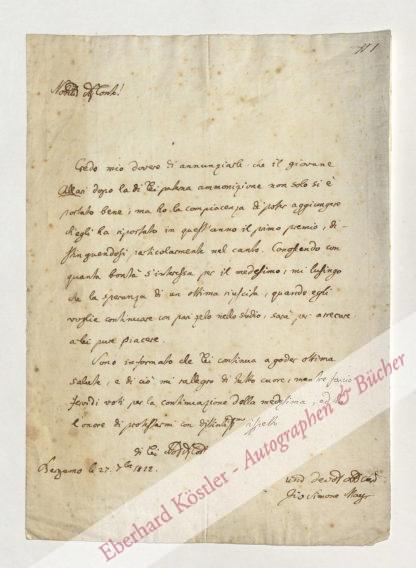 N 1
Credo mio dovere di annunziarle che il giovane
Allari dopo la di Lei paterna ammonizione non solo si è
portato bene; ma ho la compiacenza di poter aggiungere
ch'egli ha riportato in quest'anno il primo premio, di-
stinguendosi particolarmente nel canto. Conoscendo con
quanta bontà s'interessa per il medesimo; mi lusingo
che la speranza di un ottima riuscita, quando egli
voglia continuare con pari zelo nello studio, sarà per arrecare
a lei pure piacere.
Sono informato che Lei continua a goder ottima
salute, e di ciò mi rallegro di tutto cuore, mentre faccio
fervidi voti per la continuazione della medesima, ed ho
l'onore di protestarmi con distintissmo rispetto
di Lei
Bergamo le 27. 7bre 1822.
Gio Simone Mayr
Eberhard Köstler - Autographen & Bücher